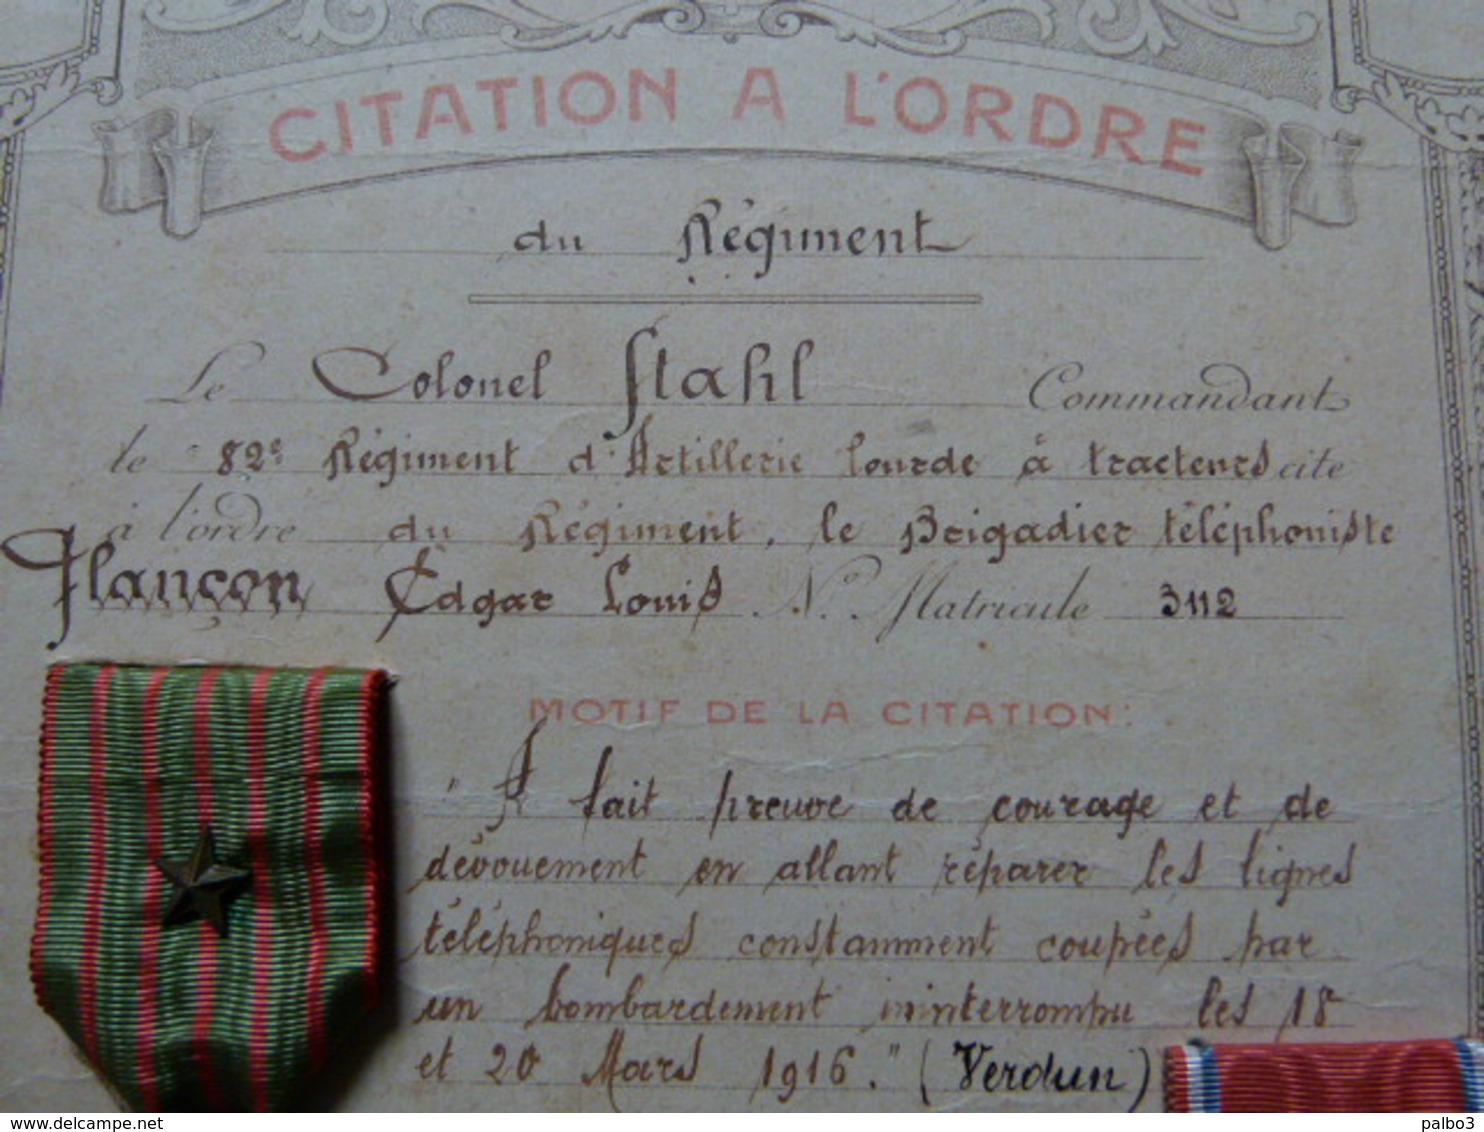 CITATION A L'ORDRE
du Régiment
Le Colonel Stahl Commandant
le 82e Régiment d'Artillerie lourde à tracteurs cite
à l'ordre du Régiment, le Brigadier téléphoniste
Flançon Edgar Louis No Matricule 3112
MOTIF DE LA CITATION:
"A fait preuve de courage et de
dévouement en allant réparer les lignes
téléphoniques constamment coupées par
un bombardement ininterrompu les 18
et 20 Mars 1916." (Verdun)
www.delcampe.net
palbo3